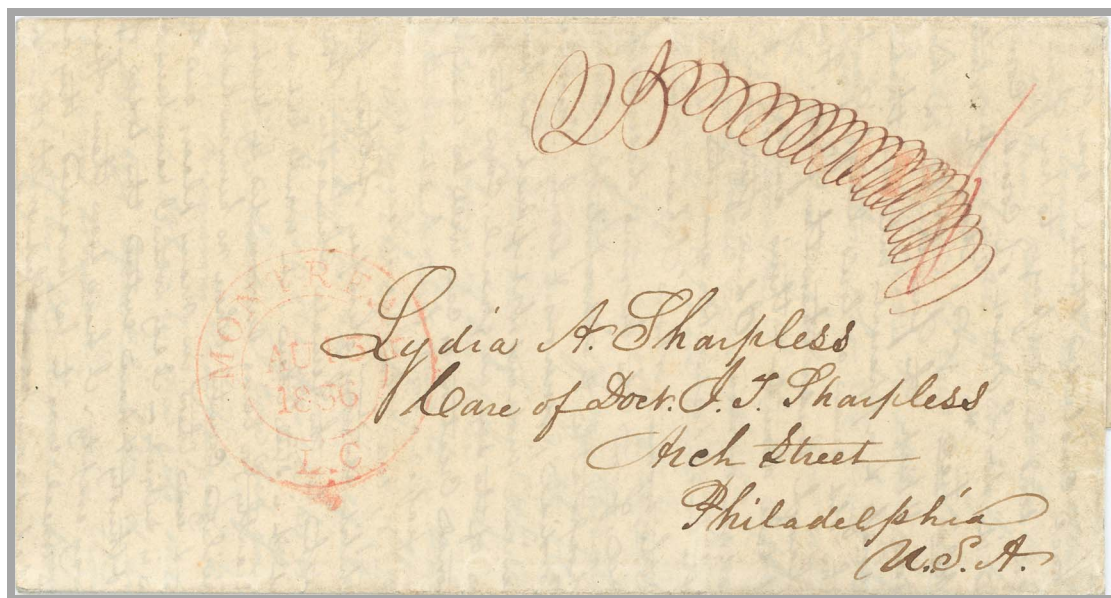 MONTREAL
AU
1836
L.C.
Lydia A. Sharpless
Care of Doct. J. T. Sharpless
Arch Street
Philadelphia
U.S.A.